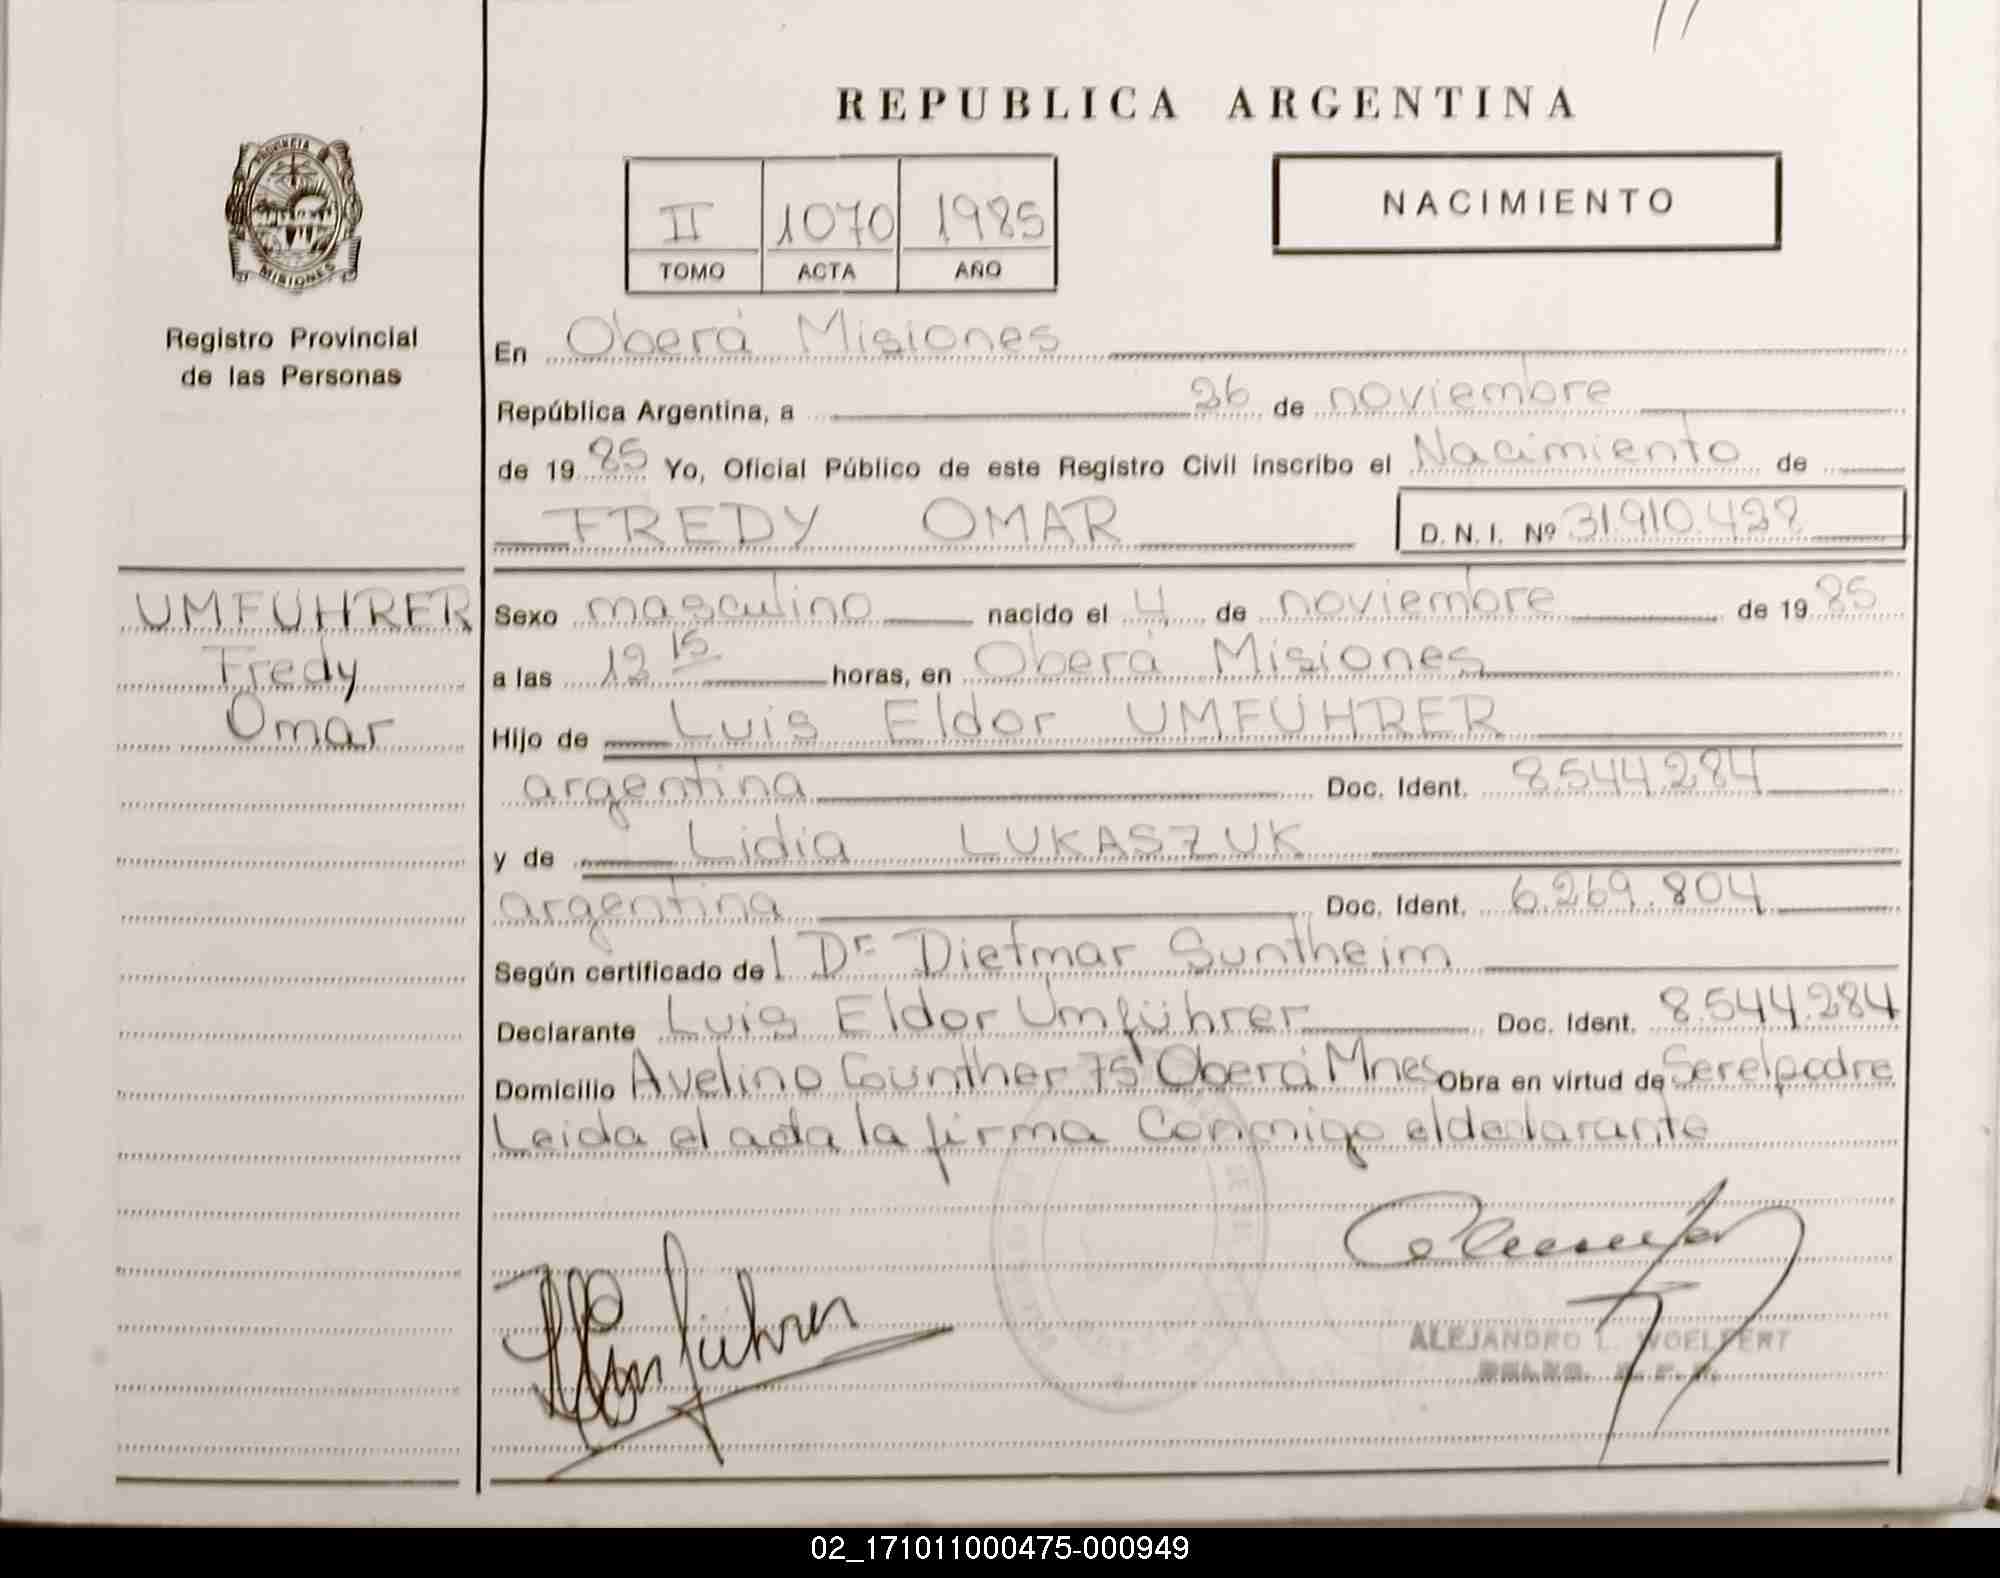 REPUBLICA ARGENTINA
PROVINCIA
MISIONES
Registro Provincial
de las Personas
II 1070 1985
TOMO ACTA AÑO
NACIMIENTO
En Oberá Misiones
República Argentina, a 26 de noviembre
de 19 85 Yo, Oficial Público de este Registro Civil inscribo el Nacimiento de
FREDY OMAR D.N.I. Nº 31.910.428
UMFÜHRER
Fredy
Omar
Sexo masculino nacido el 4 de noviembre de 19 85
a las 12 15 horas, en Oberá Misiones
Hijo de Luis Eldor UMFÜHRER
argentina Doc. Ident. 8.544.284
y de Lidia LUKASZUK
argentina Doc. Ident. 6.269.804
Según certificado del Dr Dietmar Suntheim
Declarante Luis Eldor Umführer Doc. Ident. 8.544.284
Domicilio Avelino Gunther 75 Oberá Mnes Obra en virtud de Ser el padre
Leida el acta la firma Conmigo el declarante
Umführer
ALEJANDRO L. WOELFERT
02_171011000475-000949